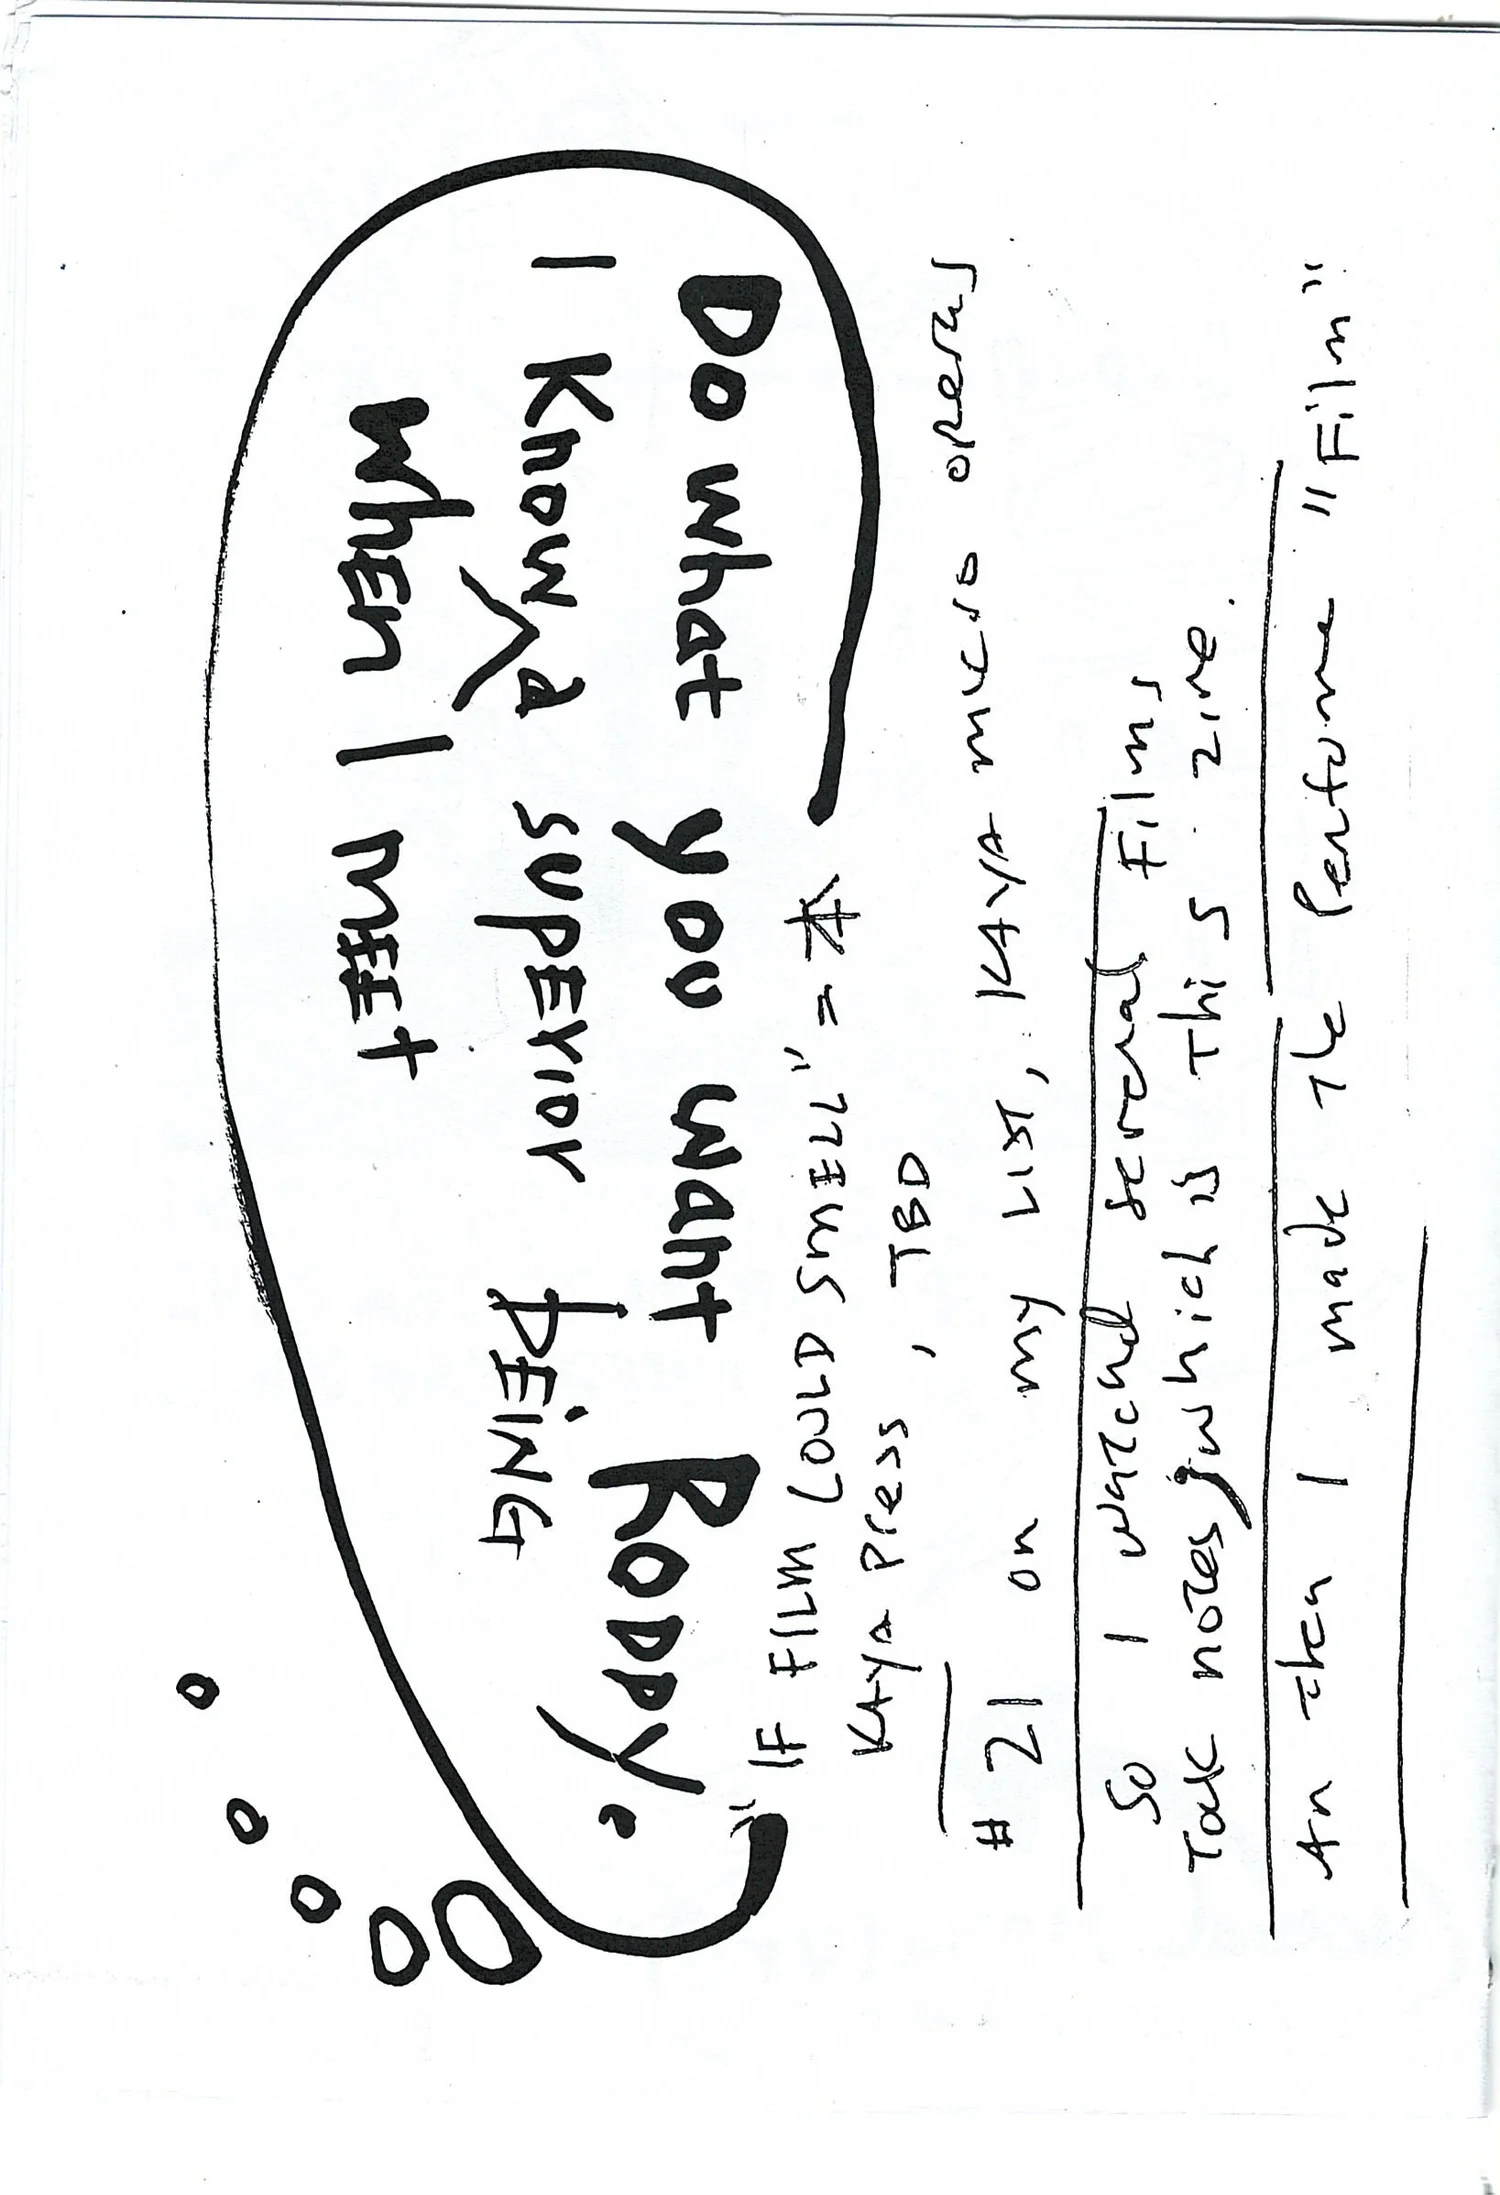 Do what you want Roddy.
I know a superior being
when I meet
"IF FILM COULD SMELL" = *
Kaya Press, TBD
# 21 on my LIST, KAYA micro operas
So I watched several Films
Took notes, which is this zine.
An then I made the Perfume "Film"